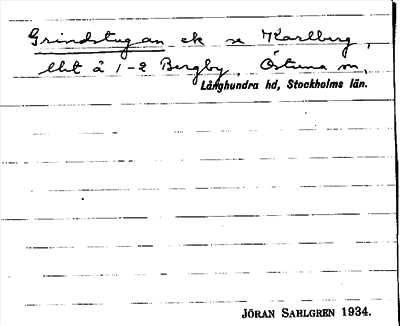 Grindstugan ek se Karlberg,
lht å 1-2 Bergby, Östuna sn,
Långhundra hd, Stockholms län.
JÖRAN SAHLGREN 1934.